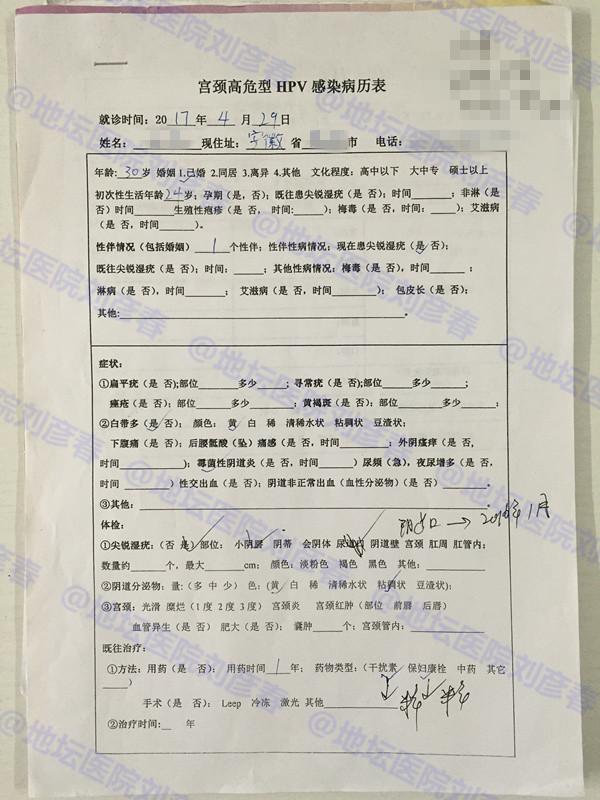 宫颈高危型 HPV 感染病历表
就诊时间：2017 年 4 月 29日
姓名：现住址：安徽 省 市 电话：
年龄：30岁 婚姻 1.已婚 2.同居 3.离异 4.其他 文化程度：高中以下 大中专 硕士以上
初次性生活年龄24岁；孕期（是，否）；既往患尖锐湿疣（是 否）；时间；非淋（是
否）时间 生殖性疱疹（是 否， 时间：）；梅毒（是 否，时间：）；艾滋病
（是 否，时间）。
性伴情况（包括婚姻）1个性伴；性伴性病情况：现在患尖锐湿疣（是 否）；
既往尖锐湿疣（是 否）；时间：；其他性病情况：梅毒（是 否），时间；
淋病（是 否），时间； 艾滋病（是 否，时间）； 包皮长（是 否）；
其他：。
症状：
①扁平疣（是 否）;部位 多少； 寻常疣（是 否）;部位 多少；
痤疮（是 否）；部位 多少； 黄褐斑（是 否）；部位 多少；
②白带多（是 否）； 颜色： 黄 白 稀 清稀水状 粘稠状 豆渣状）；
下腹痛（是 否）；后腰骶酸（坠）痛感（是 否，时间）； 外阴瘙痒（是 否，
时间）；霉菌性阴道炎（是 否，时间）尿频（急），夜尿增多（是 否，
时间）性交出血（是 否）；阴道非正常出血（血性分泌物）（是 否）；
③其他：
体检：
阴道口 → 2016年1月
①尖锐湿疣：（否 是）部位： 小阴唇 阴蒂 会阴体 尿道口 阴道壁 宫颈 肛周 肛管内；
数量约个，最大cm； 颜色：淡粉色 褐色 黑色 其他：
②阴道分泌物：量：（多 中 少） 色：（黄 白 稀 清稀水状 粘稠状 豆渣状）；
③宫颈：光滑 糜烂（1 度 2 度 3 度） 宫颈炎 宫颈红肿（部位 前唇 后唇）
血管异生（是 否） 肥大（是 否）； 囊肿个；宫颈管内：
既往治疗：
①方法：用药（是 否）： 用药时间 1 年； 药物类型：（干扰素 保妇康栓 中药 其它
）
手术（是 否）： Leep 冷冻 激光 其他
②治疗时间： 年
@地坛医院刘彦春